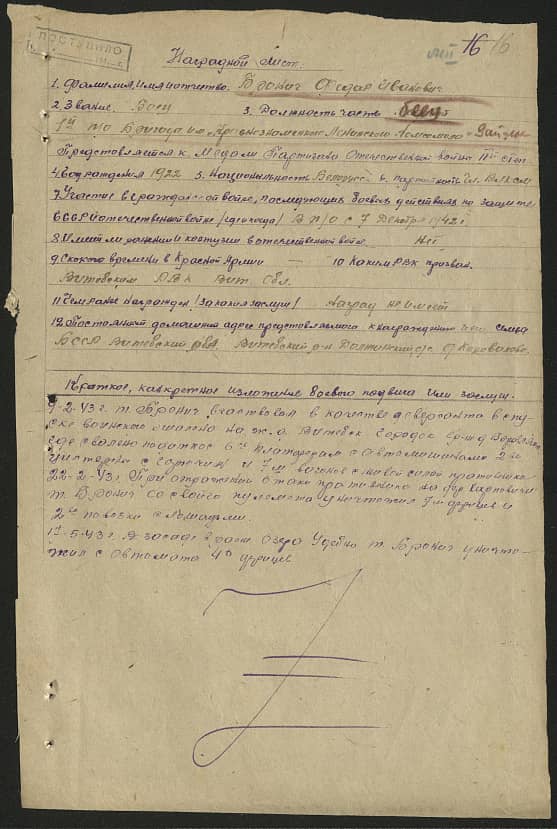 ПОСТУПИЛО
16
Наградной лист.
1. Фамилия, имя и отчество. Бронич Федар Иванович
2 Звание. Боец 3. Должность часть боец
Бригада им Краснознаменного Ленинского Комсомола
Представляется к Медали Партизана Отечественной войны II степ.
4 Год рождения 1922 5. Национальность Белорус 6. партийность Чл. ВЛКСМ
7 Участие в гражданской войне, последующих боевых действиях по защите
СССР и отечественной войне /где когда/ В П/О с 7 Декабря 1942 г
8. Имеет ли ранения и контузии в отечественной войне Нет
9 С какого времени в Красной Армии — 10 Каким РВК призван.
Витебским РВК Вит. Обл.
11 Чем ранее награжден /за какие заслуги/ Наград не имеет
12 Постоянный домашний адрес представляемого к награждению семьи
БССР Витебский Витебский р-н с/с д.
Краткое, конкретное изложение боевого подвига или заслуг.
9-2-43 г. т. Бронич участвовал в качестве диверсанта в спу-
ске воинского эшелона на ж.д. Витебск Городок
где свалено под откос 6ть платформ с автомашинами 2е
цистерны с горючим и 7м вагонов с живой силой противника
22-2-43 г. При отражении атаки противника на
т. Бронич со своего пулемета уничтожил 7м фрицев и
2е повозки с лошадями.
-5-43 г. В засаде в районе озера т. Бронич уничто-
жил с автомата 4х фрицев